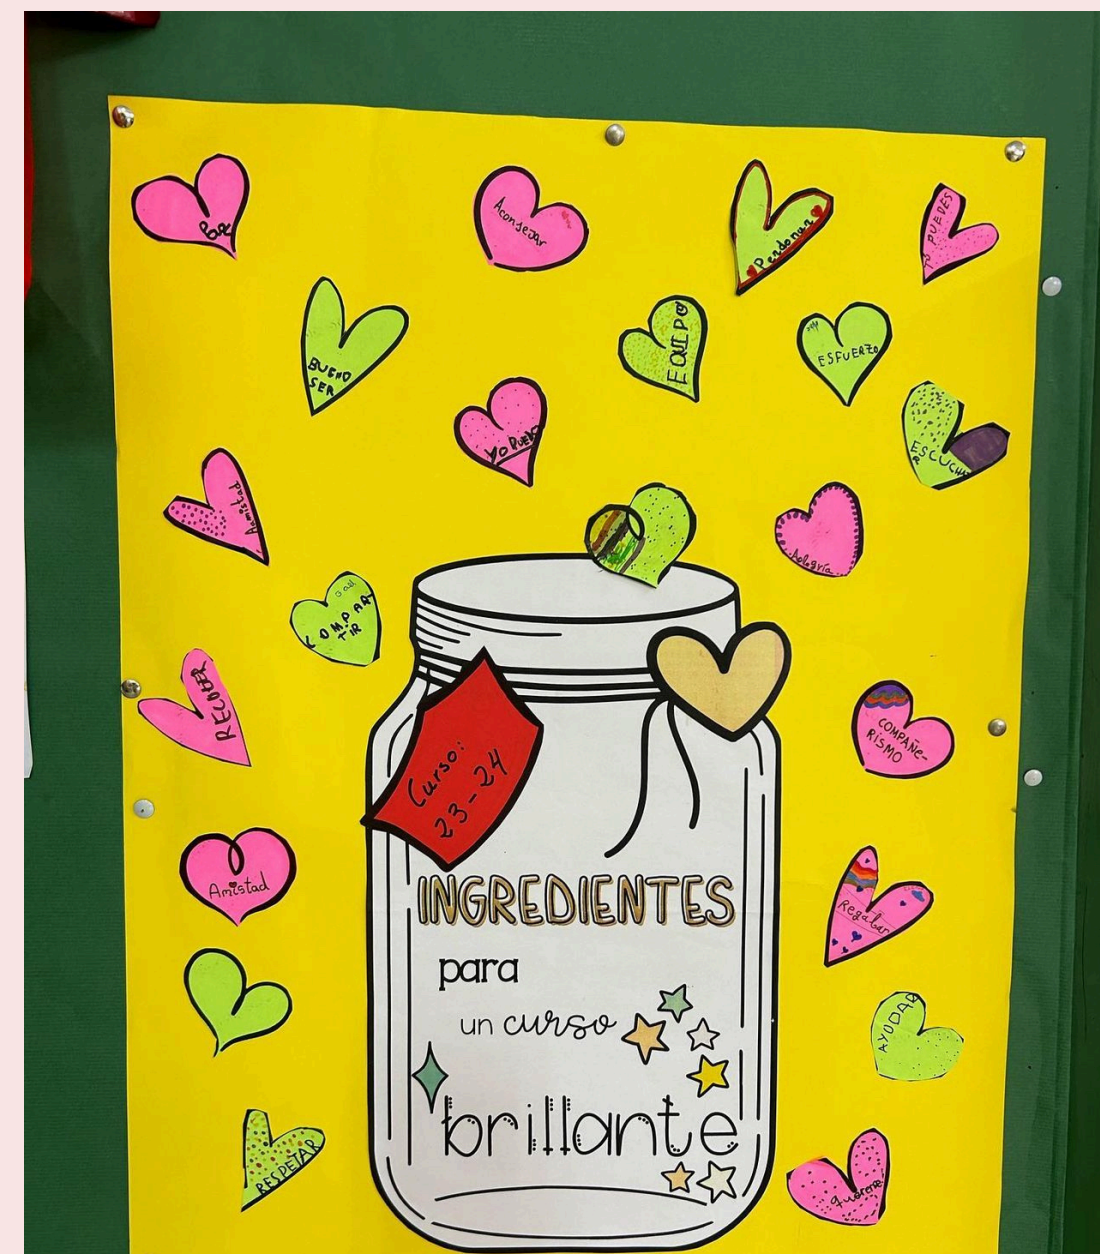 Aconsejar
Perdonar
TÚ PUEDES
BUENO
SER
EQUIPO
ESFUERZO
YO PUEDO
ESCUCHA
R
Amistad
Alegría
COMPAR-
TIR
RECOGER
COMPAÑE-
RISMO
Curso:
23-24
Amistad
INGREDIENTES
para
un curso
brillante
Regalar
AYUDAR
RESPETAR